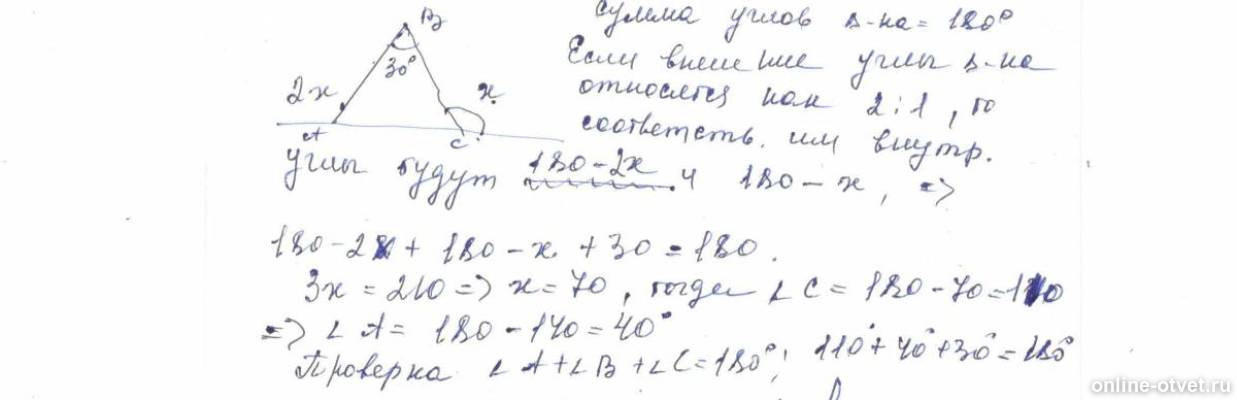 B
30°
2x
x
A
C
сумма углов Δ-ка = 180°
Если внешние углы Δ-ка
относятся как 2:1, то
соответств. им внутр.
углы будут 180-2x и 180-x, =>
180-2x + 180-x + 30 = 180.
3x = 210 => x = 70, тогда ∠C = 180-70=110
=> ∠A = 180-140=40°
Проверка ∠A+∠B+∠C=180°; 110°+40°+30°=180°
online-otvet.ru